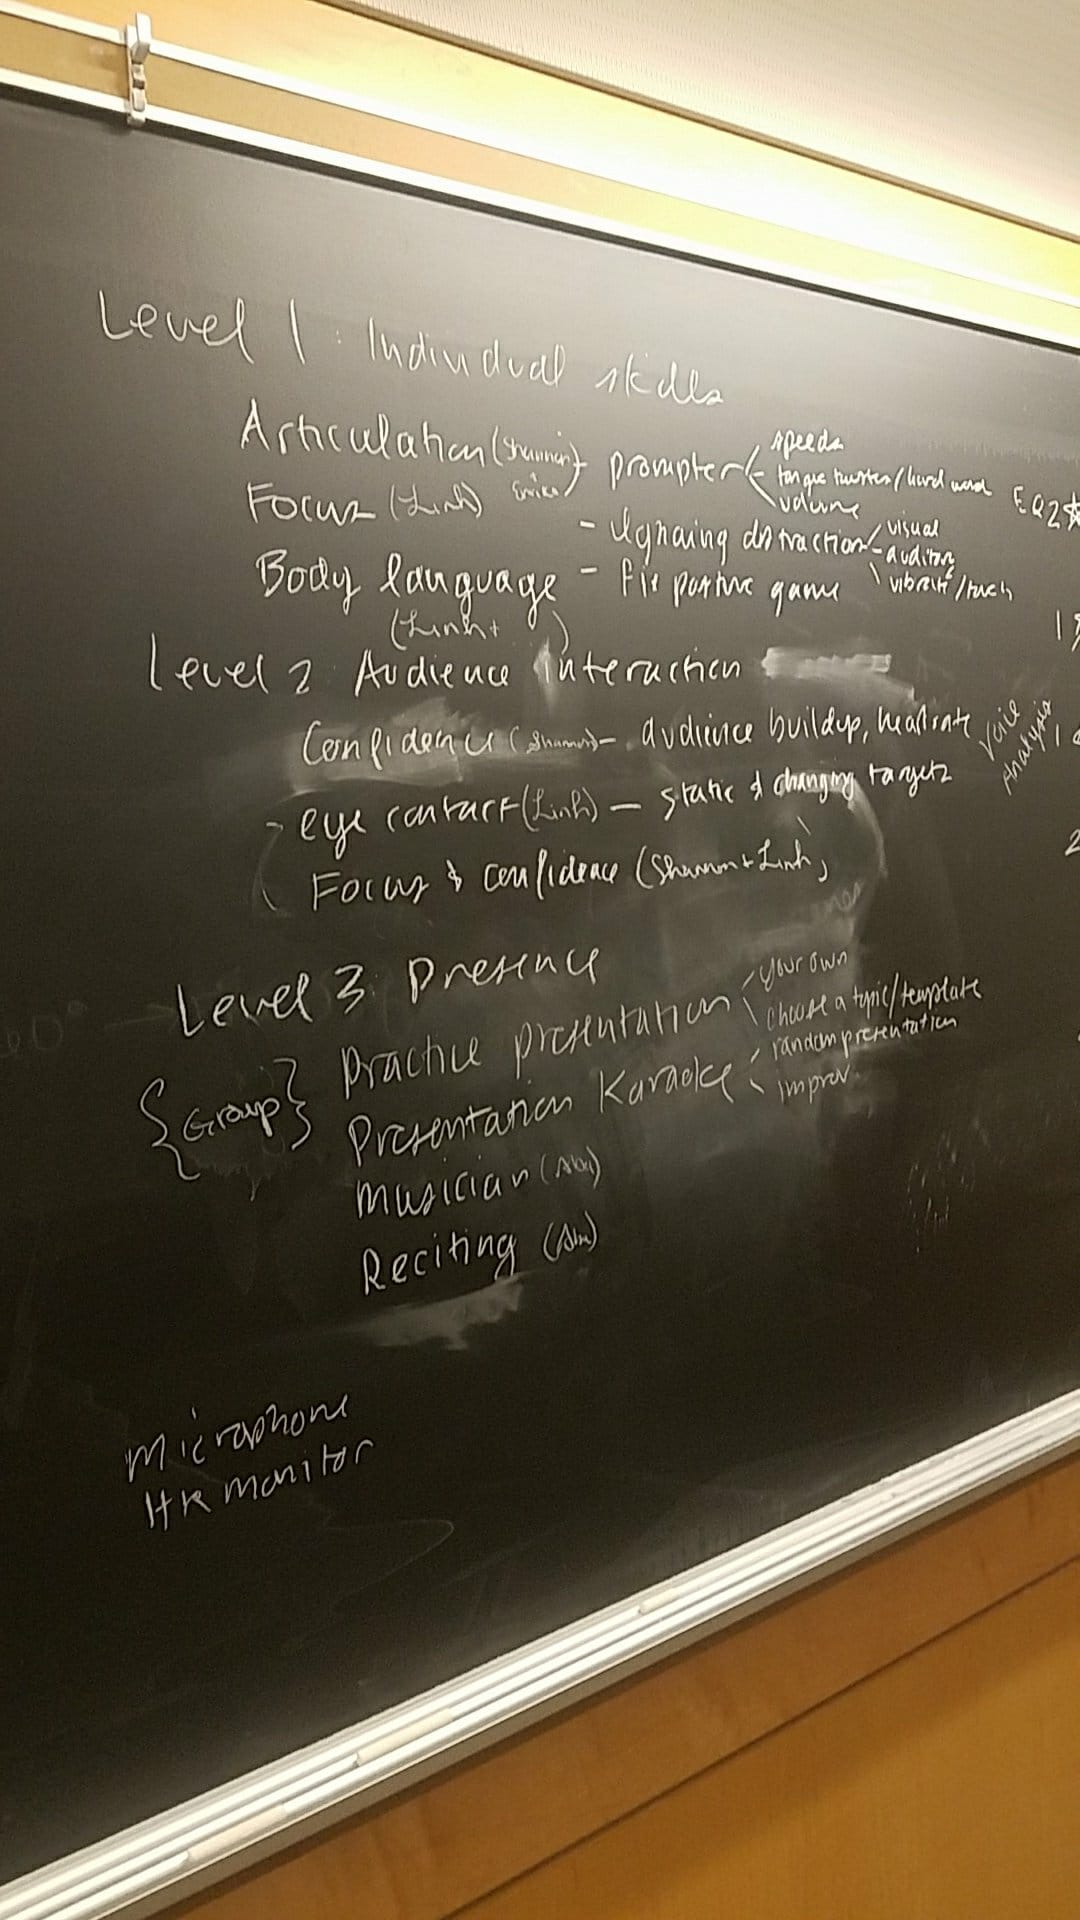 Level 1: Individual skills
Articulation (Shannon) prompter
speeds
tongue twister/hard word
volume
EQ2
Focus (Linh)
- Ignoring distraction
visual
auditory
vibrate/touch
Body language - fix posture game
(Linh+ )
Level 2 Audience interaction
Confidence (Shannon) - audience buildup, heartrate
Voice
Analysis
- eye contact (Linh) - static & changing targets
Focus & confidence (Shannon + Linh)
Level 3: Presence
{Group}
Practice presentation
your own
choose a topic/template
Presentation Karaoke
random presentation
improv.
Musician
Reciting
Microphone
HR monitor